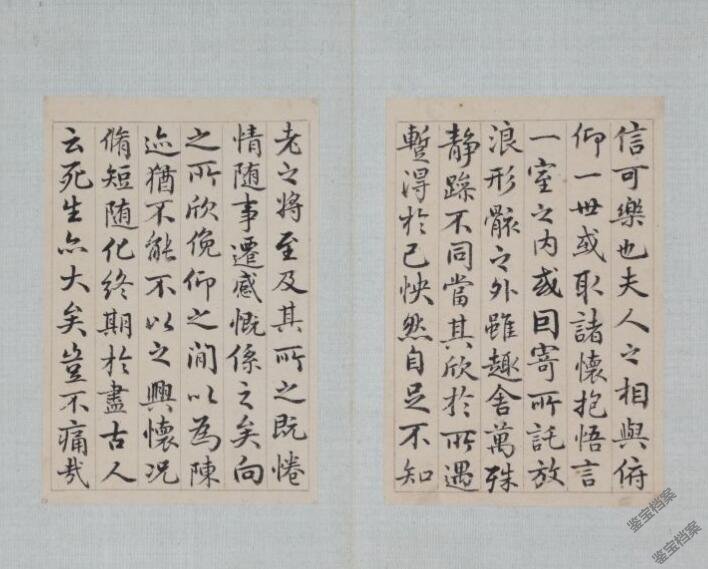 信可樂也夫人之相與俯
仰一世或取諸懷抱悟言
一室之内或因寄所託放
浪形骸之外雖趣舍萬殊
静躁不同當其欣於所遇
蹔得於己怏然自足不知
老之將至及其所之既惓
情随事遷感慨係之矣向
之所欣俛仰之間以為陳
迹猶不能不以之興懷况
脩短随化終期於盡古人
云死生亦大矣豈不痛哉
鉴宝档案
鉴宝档案